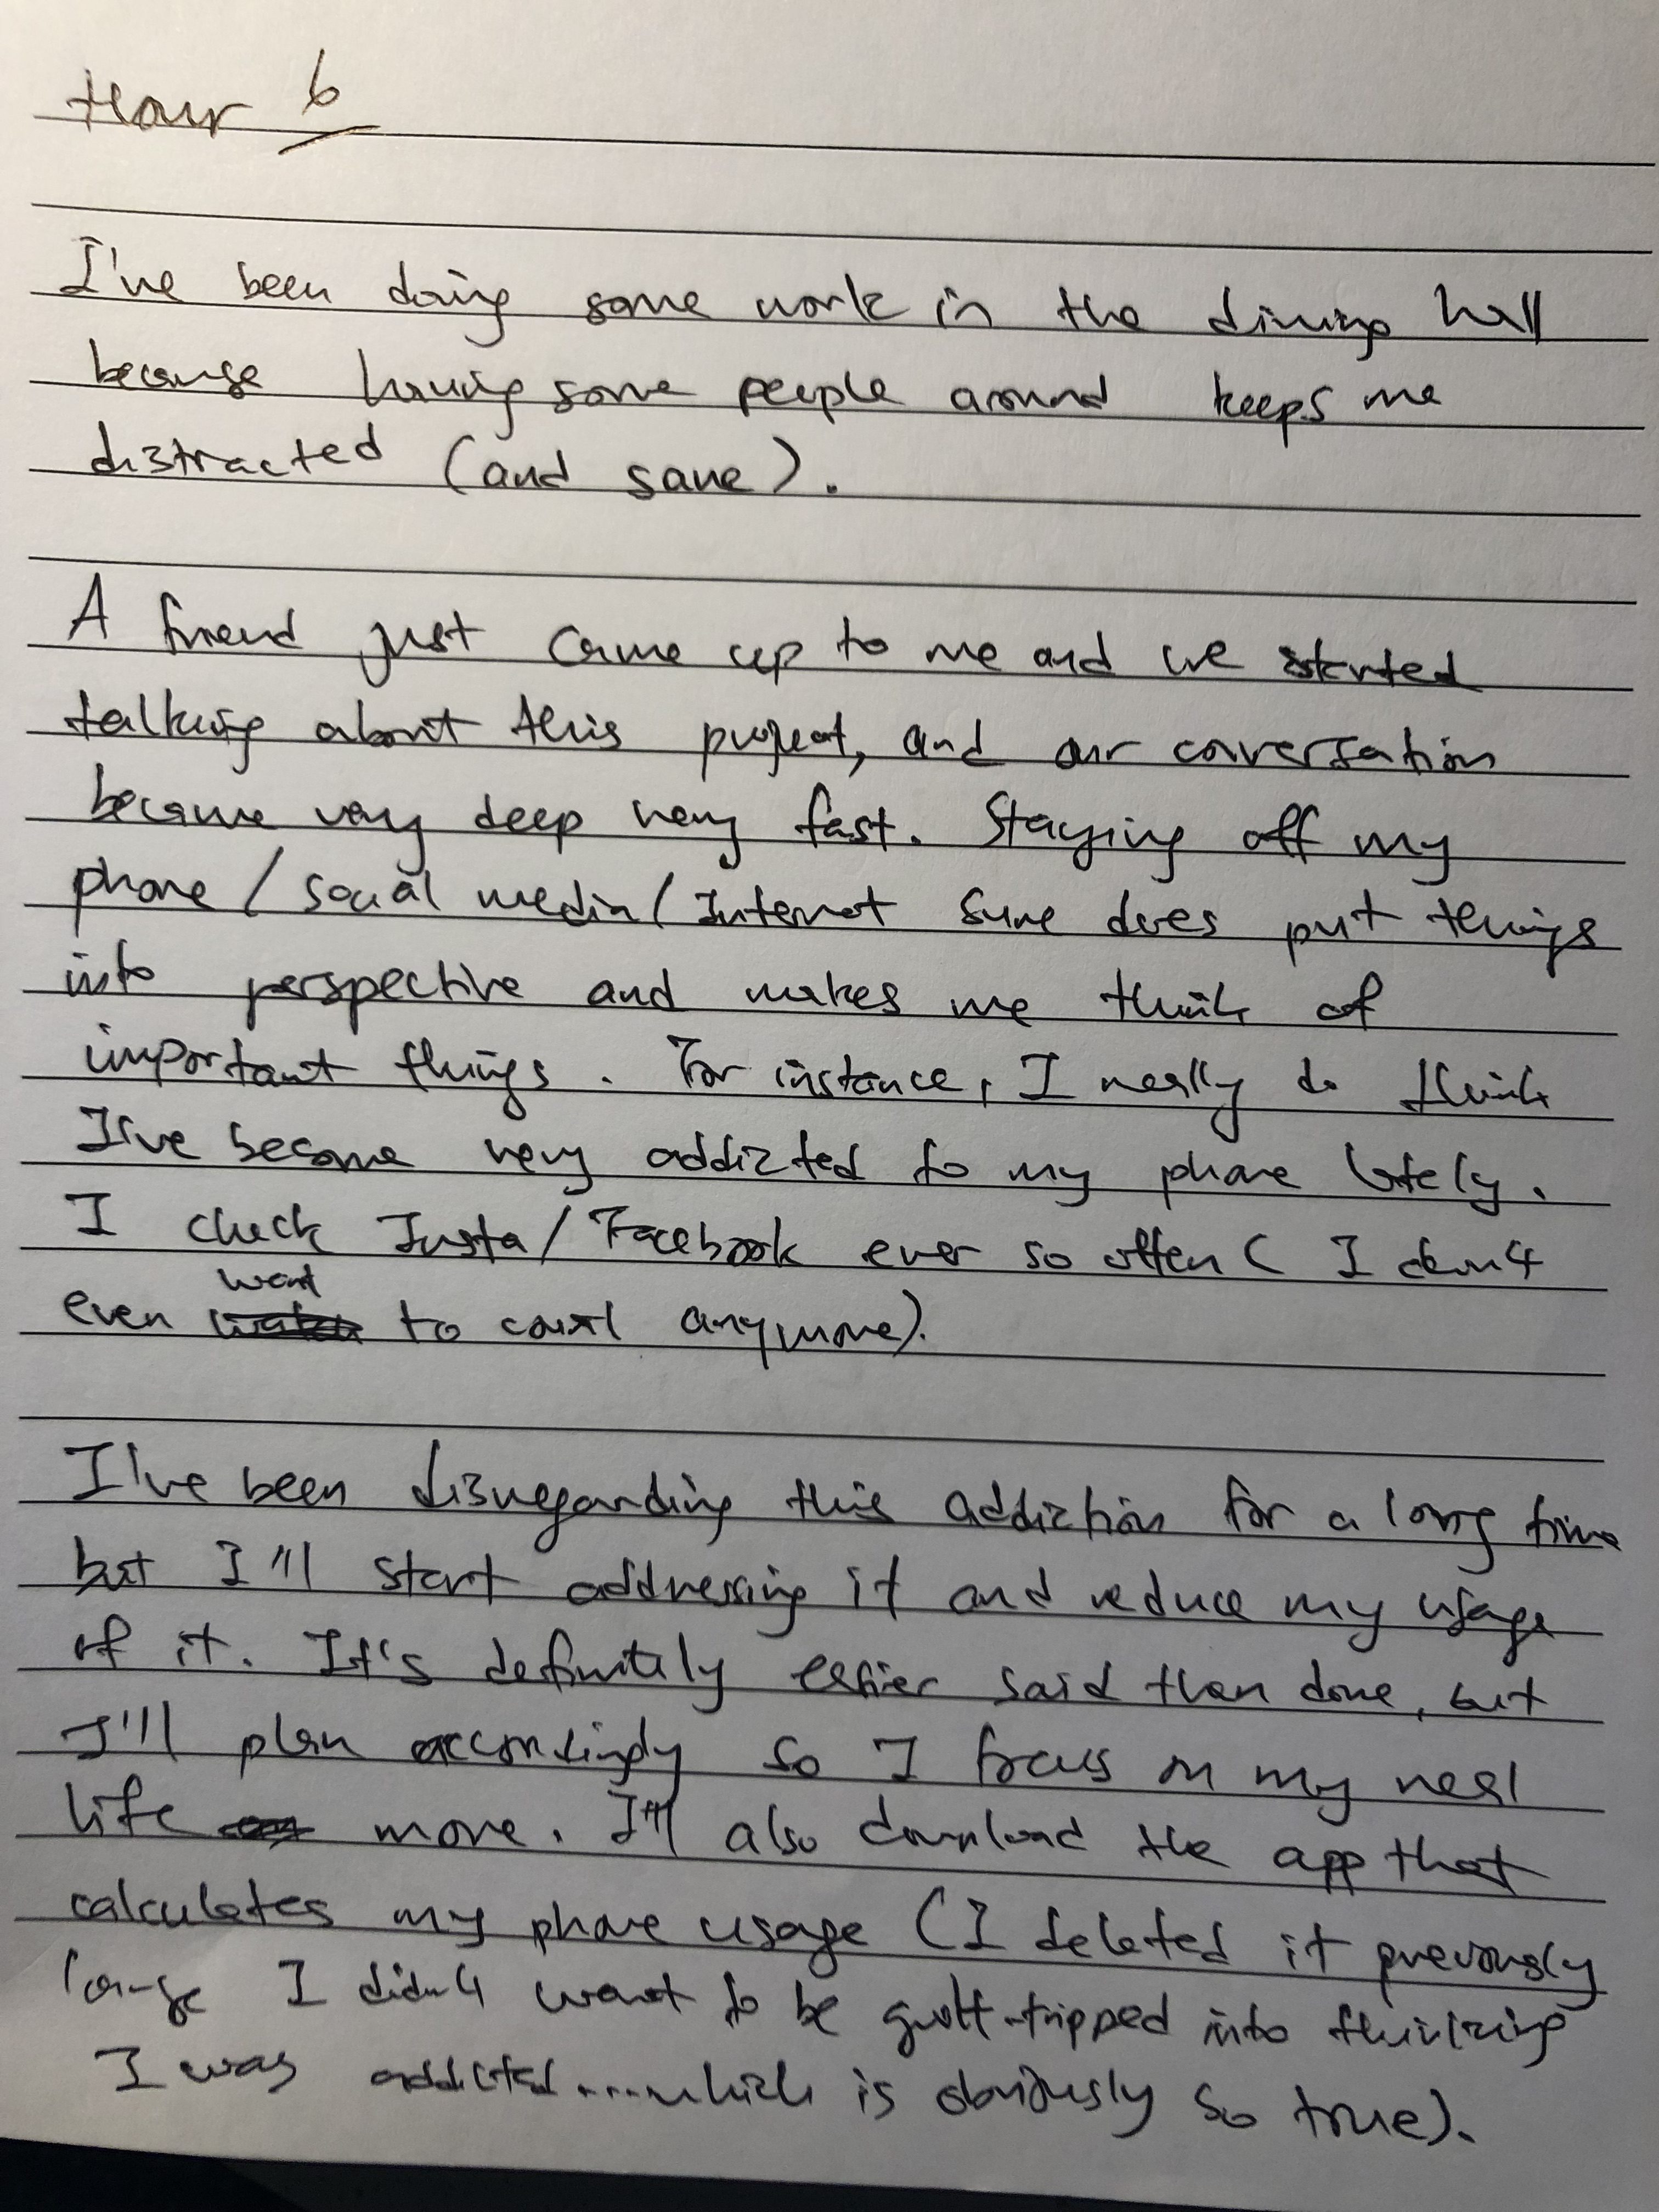 Hour 6
I've been doing some work in the dining hall
because having some people around keeps me
distracted (and sane).
A friend just came up to me and we started
talking about this project, and our conversation
became very deep very fast. Staying off my
phone / social media / Internet sure does put things
into perspective and makes me think of
important things. For instance, I really do think
I've become very addicted to my phone lately.
I check Insta / Facebook ever so often ( I don't
even want to count anymore).
I've been disregarding this addiction for a long time
but I'll start addressing it and reduce my usage
of it. It's definitely easier said than done, but
I'll plan accordingly so I focus on my real
life more. I'll also download the app that
calculates my phone usage (I deleted it previously
I didn't want to be guilt-tripped into thinking
I was addicted....which is obviously so true).